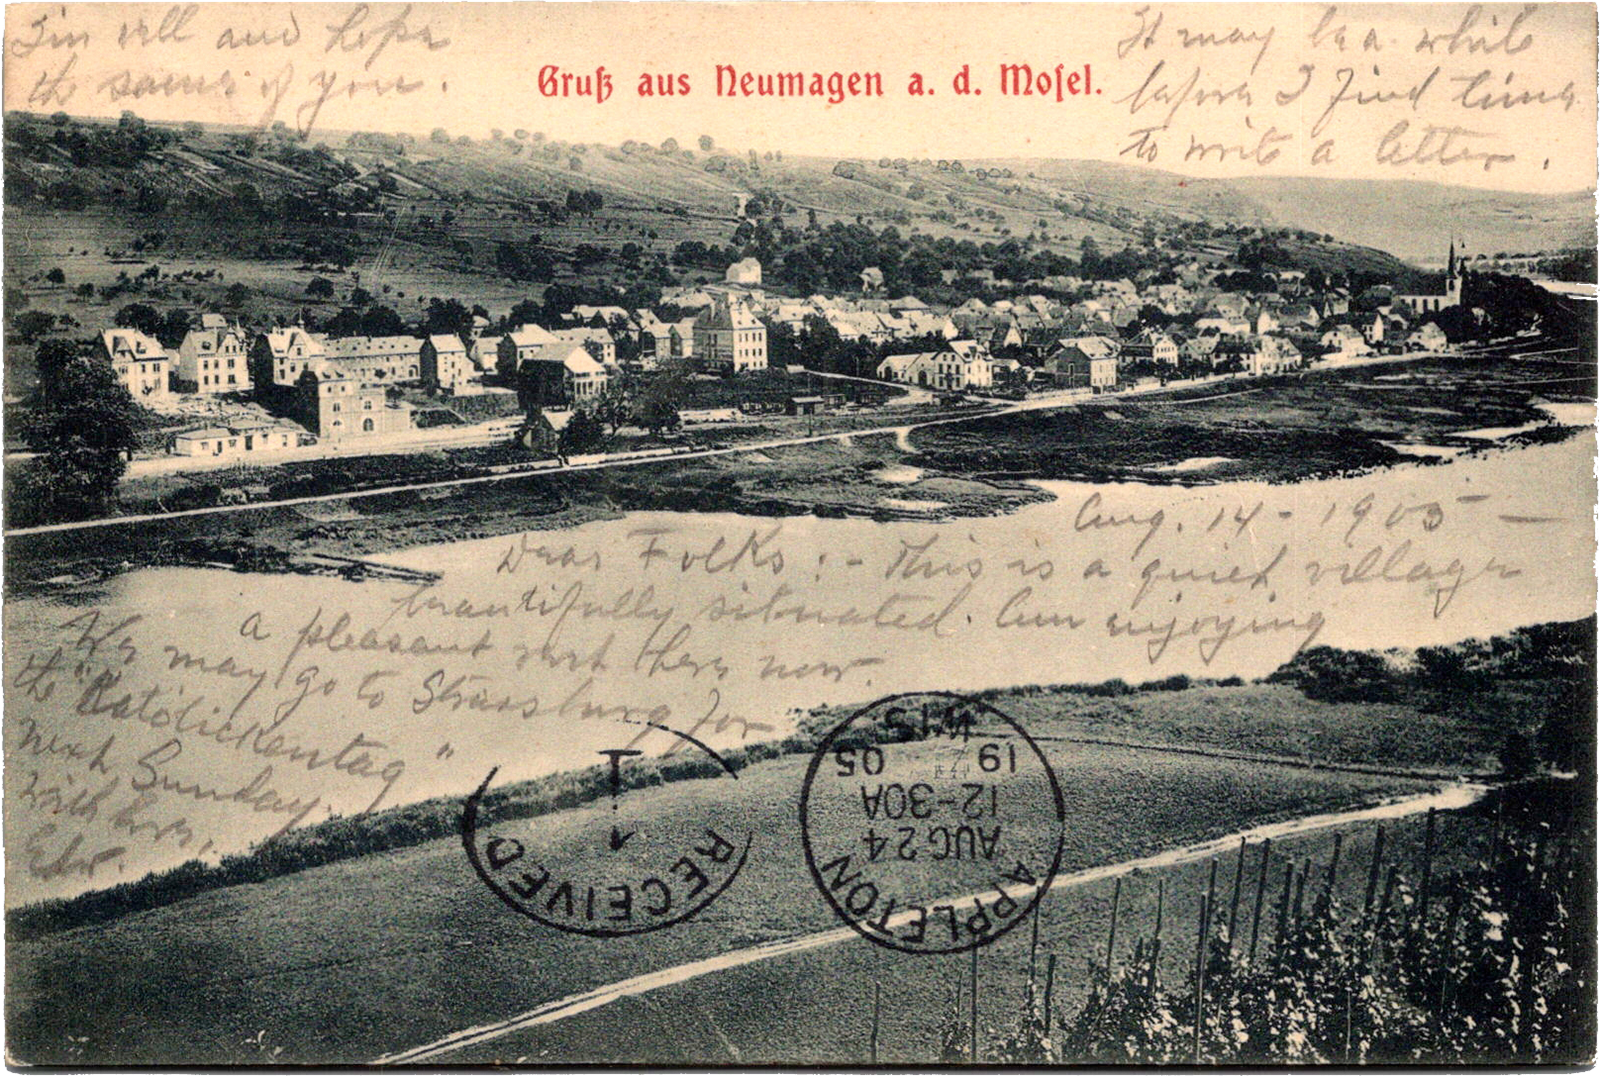 Gruß aus Neumagen a. d. Moſel.
Aug. 14 - 1905 -
Dear Folks : - This is a quiet village
beautifully situated. Am enjoying
a pleasant rest here now.
We may go to Strassburg for
the "Katolickentag"
next Sunday.
With love,
Edw.
I'm well and hope
the same of you.
It may be a while
before I find time
to write a letter.
RECEIVED
1
APPLETON
AUG 24
12-30A
19 05
WIS